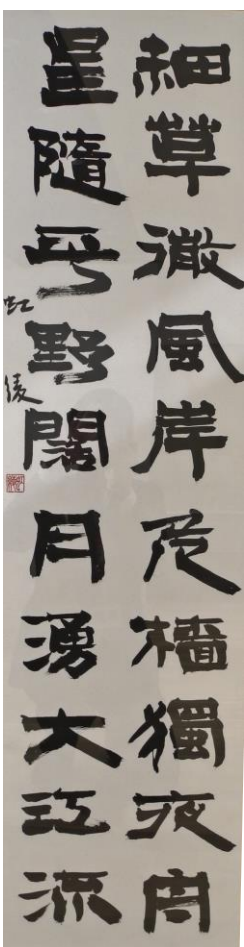 細草微風岸危檣獨夜舟
星隨平野闊月湧大江流
虹